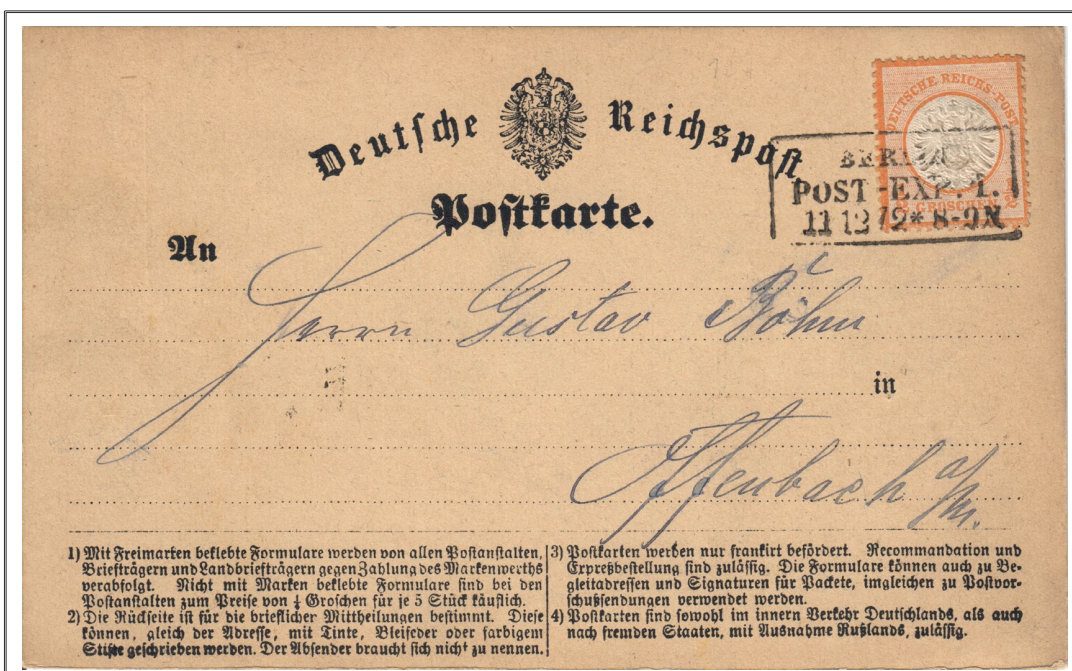 Deutsche Reichspost
DEUTSCHE REICHS-POST
½ GROSCHEN ½
Postkarte.
BERLIN
POST-EXP. 1.
11 12 72 * 8-9N
An
Herrn Gustav Böhm
in
Offenbach a/m.
1) Mit Freimarken beklebte Formulare werden von allen Postanstalten,
Briefträgern und Landbriefträgern gegen Zahlung des Markenwerths
verabfolgt. Nicht mit Marken beklebte Formulare sind bei den
Postanstalten zum Preise von ¼ Groschen für je 5 Stück käuflich.
2) Die Rückseite ist für die brieflicher Mittheilungen bestimmt. Diese
können, gleich der Adresse, mit Tinte, Bleifeder oder farbigem
Stifte geschrieben werden. Der Absender braucht sich nicht zu nennen.
3) Postkarten werden nur frankirt befördert. Recommandation und
Expreßbestellung sind zulässig. Die Formulare können auch zu Be-
gleitadressen und Signaturen für Packete, imgleichen zu Postvor-
schußsendungen verwendet werden.
4) Postkarten sind sowohl im innern Verkehr Deutschlands, als auch
nach fremden Staaten, mit Ausnahme Rußlands, zulässig.